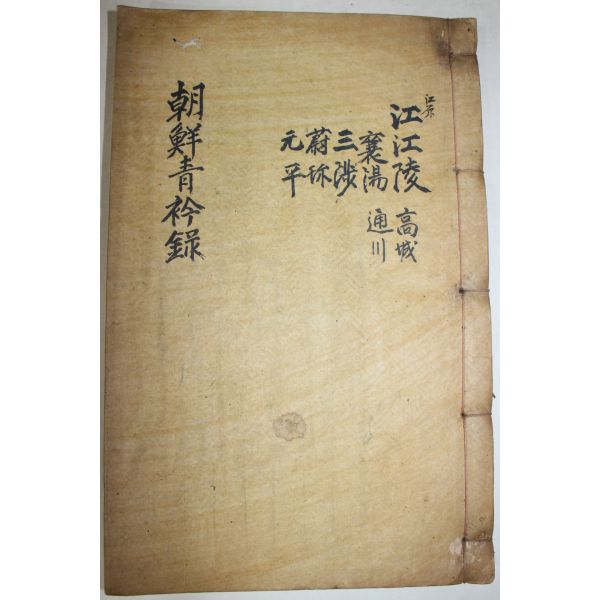 江原
江江陵 高城
襄湯 通川
三陟
蔚称
元平
朝鮮青衿錄